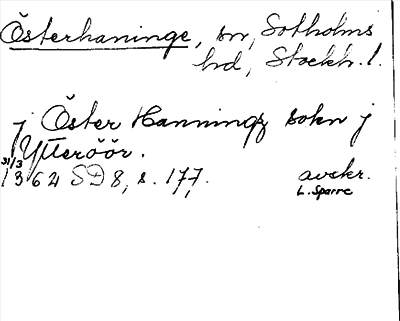 Österhaninge, sn, Sotholms
hd, Stockh. l.
j Öster Hanningz sokn j
Ytteröör.
31/3
1364 SD 8, s. 177.
avskr.
L. Sparre